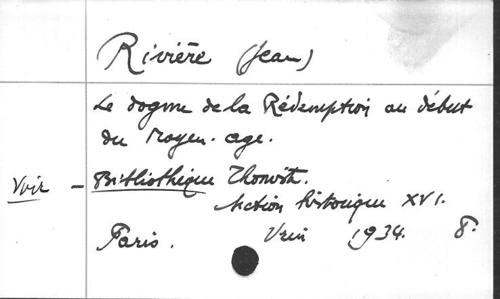 Rivière (Jean)
Le dogme de la Rédemption au début
du Moyen-age.
Voir - Bibliothèque Thomiste.
Section historique XVI.
Paris. Vrin 1934. 8.